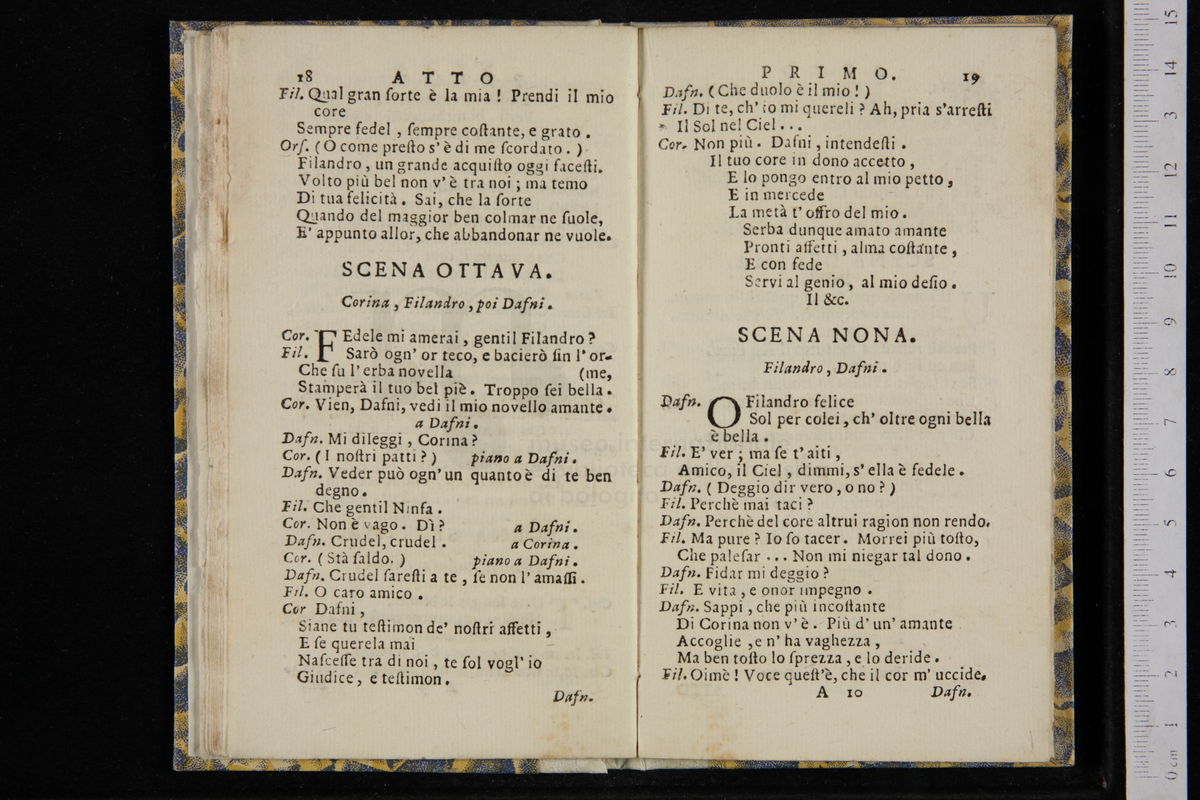 18 ATTO
Fil. Qual gran ſorte è la mia! Prendi il mio
core
Sempre fedel, ſempre coſtante, e grato.
Orſ. (O come preſto s'è di me ſcordato.)
Filandro, un grande acquiſto oggi faceſti.
Volto più bel non v'è tra noi; ma temo
Di tua felicità. Sai, che la ſorte
Quando del maggior ben colmar ne ſuole,
E' appunto allor, che abbandonar ne vuole.
SCENA OTTAVA.
Corina, Filandro, poi Dafni.
Cor. FEdele mi amerai, gentil Filandro?
Fil. Sarò ogn' or teco, e bacierò ſin l'or-
Che ſu l'erba novella (me,
Stamperà il tuo bel piè. Troppo ſei bella.
Cor. Vien, Dafni, vedi il mio novello amante.
a Dafni.
Dafn. Mi dileggi, Corina?
Cor. (I noſtri patti?) piano a Dafni.
Dafn. Veder può ogn'un quanto è di te ben
degno.
Fil. Che gentil Ninfa.
Cor. Non è vago. Dì? a Dafni.
Dafn. Crudel, crudel. a Corina.
Cor. (Stà ſaldo.) piano a Dafni.
Dafn. Crudel ſareſti a te, ſe non l'amaſſi.
Fil. O caro amico.
Cor Dafni,
Siane tu teſtimon de' noſtri affetti,
E ſe querela mai
Naſceſſe tra di noi, te ſol vogl'io
Giudice, e teſtimon.
Dafn.
PRIMO. 19
Dafn. (Che duolo è il mio!)
Fil. Di te, ch'io mi quereli? Ah, pria s'arreſti
Il Sol nel Ciel...
Cor. Non più. Dafni, intendeſti.
Il tuo core in dono accetto,
E lo pongo entro al mio petto,
E in mercede
La metà t'offro del mio.
Serba dunque amato amante
Pronti affetti, alma coſtante,
E con fede
Servi al genio, al mio deſio.
Il &c.
SCENA NONA.
Filandro, Dafni.
Dafn. O Filandro felice
Sol per colei, ch'oltre ogni bella
è bella.
Fil. E' ver; ma ſe t'aiti,
Amico, il Ciel, dimmi, s'ella è fedele.
Dafn. (Deggio dir vero, o no?)
Fil. Perchè mai taci?
Dafn. Perchè del core altrui ragion non rendo.
Fil. Ma pure? Io ſo tacer. Morrei più toſto,
Che paleſar... Non mi niegar tal dono.
Dafn. Fidar mi deggio?
Fil. E vita, e onor impegno.
Dafn. Sappi, che più incoſtante
Di Corina non v'è. Più d'un'amante
Accoglie, e n'ha vaghezza,
Ma ben toſto lo ſprezza, e lo deride.
Fil. Oimè! Voce queſt'è, che il cor m'uccide.
A 10 Dafn.
museo
di bologna
0 cm 1 2 3 4 5 6 7 8 9 10 11 12 13 14 15